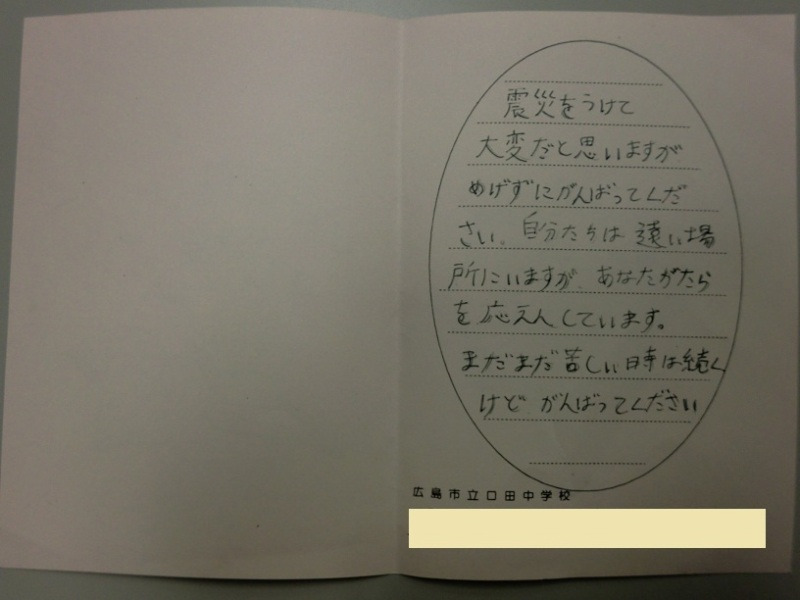 震災をうけて
大変だと思いますが
めげずにがんばってくだ
さい。自分たちは遠い場
所にいますが、あなたがたら
を応えんしています。
まだまだ苦しい時は続く
けど がんばってください
広島市立口田中学校